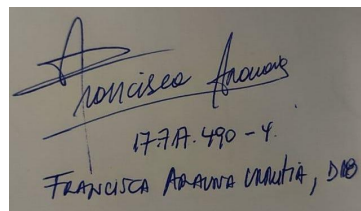 Francisca Araona
17.717.490-4.
FRANCISCA ARAUNA URRUTIA, DIB